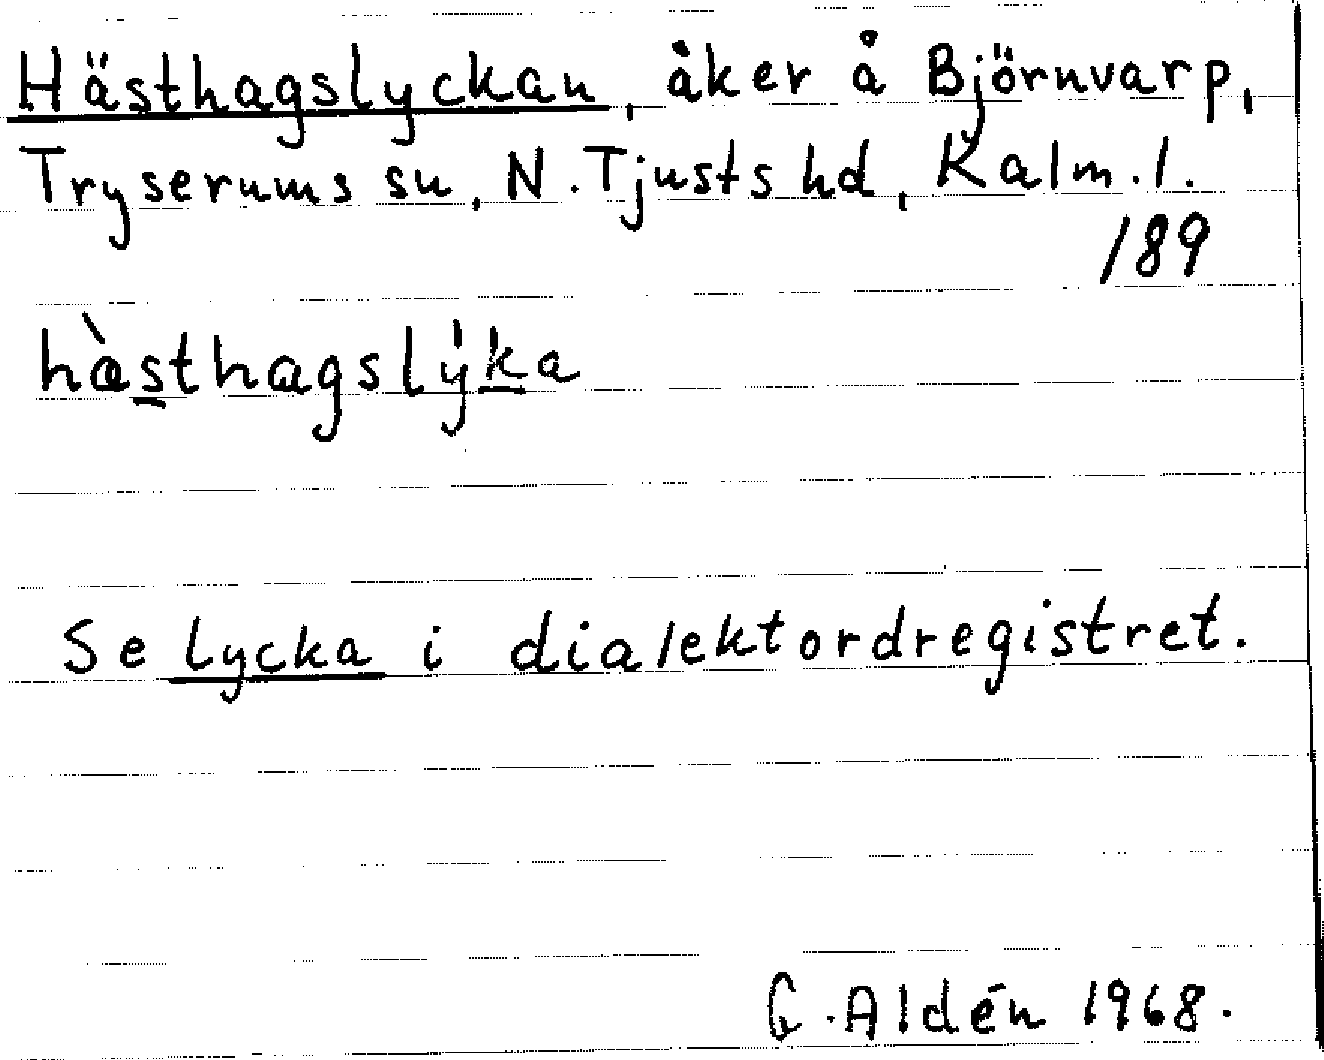 Hästhagslyckan, åker å Björnvarp,
Tryserums sn, N. Tjusts hd, Kalm. l.
189
hàsthagslẙka
Se lycka i dialektordregistret.
G. Aldén 1968.